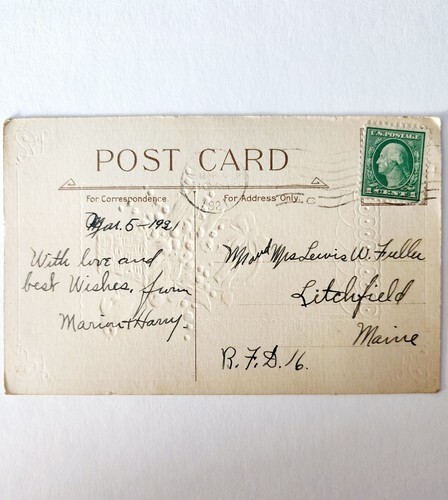 U.S. POSTAGE
1 CENT 1
POST CARD
192
For Correspondence.
For Address Only.
Mar. 5-1921
With love and
best Wishes, from
Marion & Harry.
Mr and Mrs Lewis W. Fuller
Litchfield
Maine
R.F.D. 16.